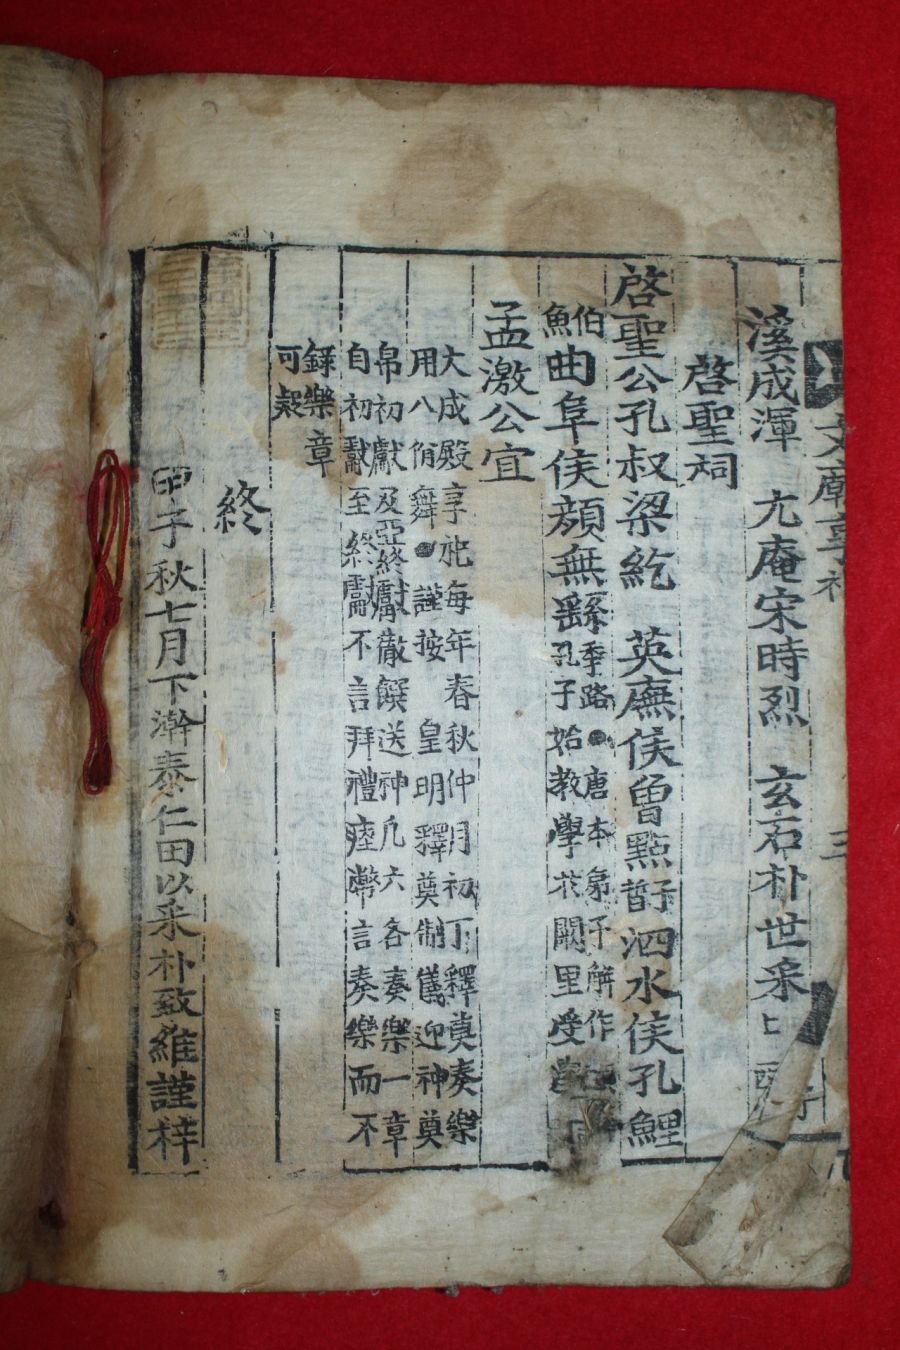 文廟享祀
三
溪成渾 尤庵宋時烈 玄石朴世采
啓聖祠
啓聖公孔叔梁紇 英廡侯曾點晳子 泗水侯孔鯉
伯魚 曲阜侯顔無繇季路●唐本弟子解作
孔子始教學於闕里受
孟激公宜
大成殿享祀每年春秋仲月初丁釋奠奏樂
用八佾舞●謹按 皇明釋奠儀迎神奠
帛初獻及亞終獻徹饌送神凡六各奏樂一章
自初獻至終獻不言拜禮瘞幣言奏樂而不
錄樂章
可疑
終
甲子秋七月下澣泰仁田以采朴致維謹梓